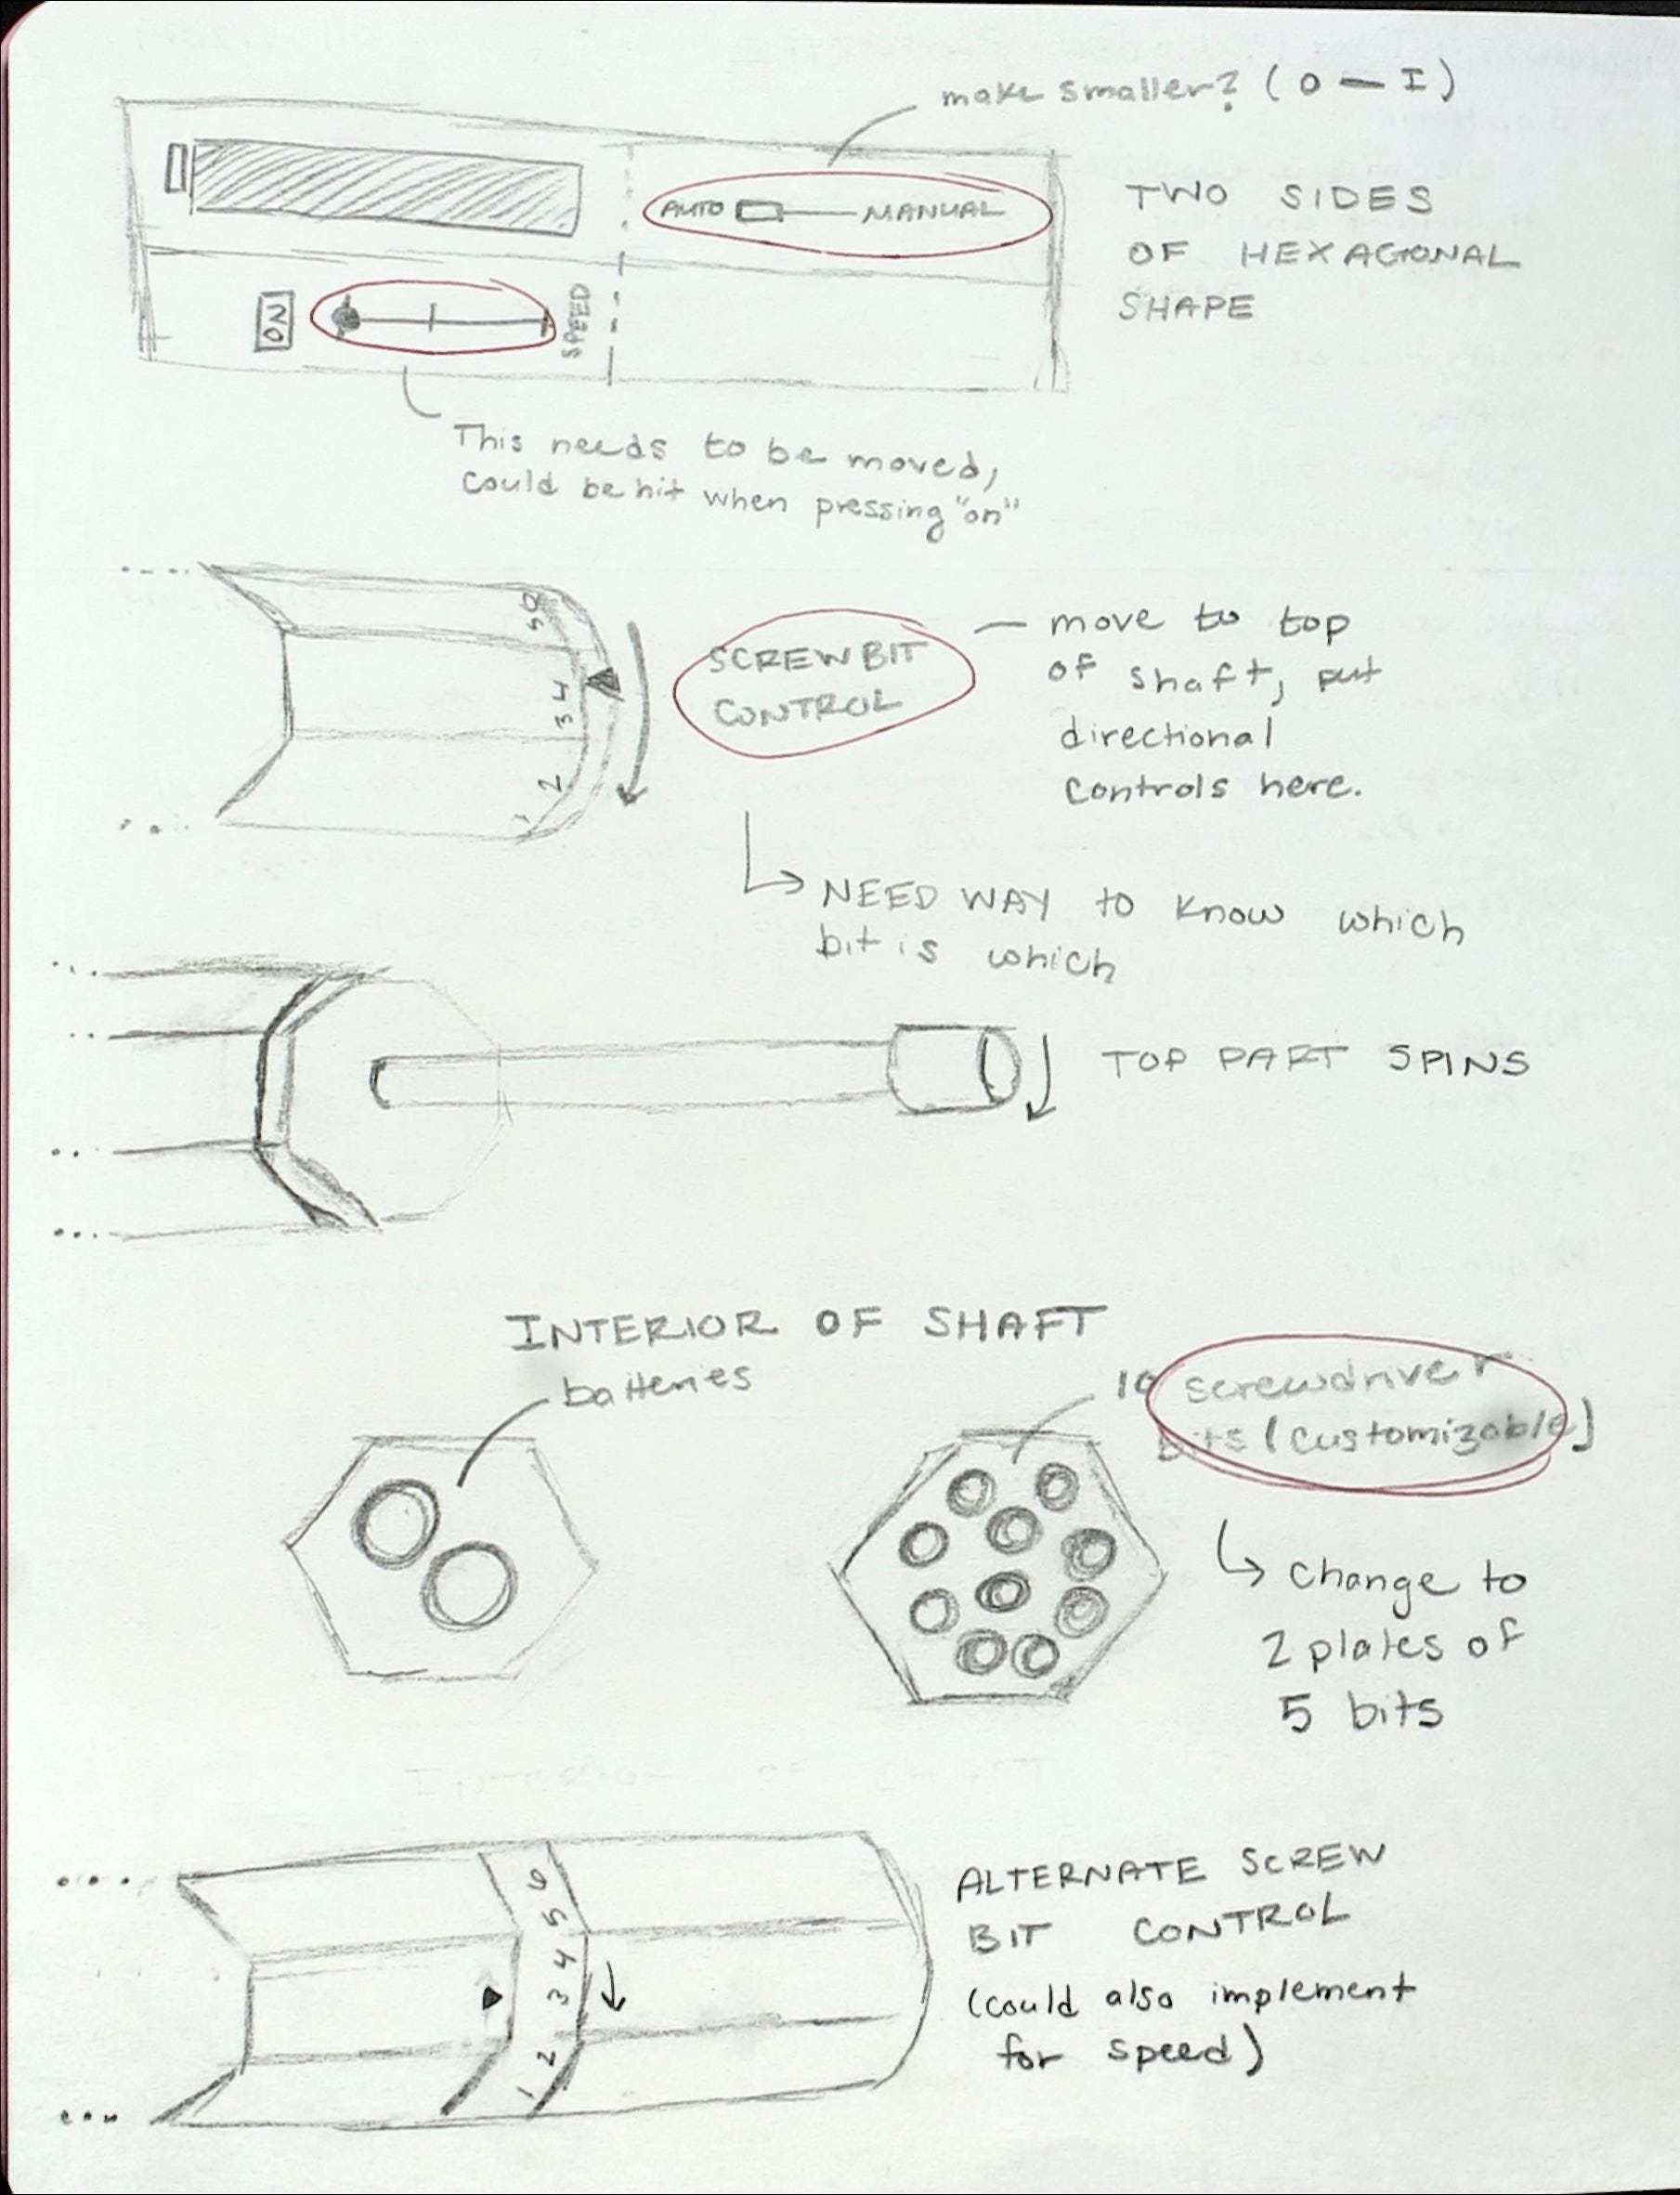 make smaller? (O — I)
AUTO MANUAL
TWO SIDES
OF HEXAGONAL
SHAPE
ON
SPEED
This needs to be moved,
could be hit when pressing "on"
1 2 3 4 5 6
SCREW BIT
CONTROL
— move to top
of shaft, put
directional
controls here.
NEED WAY to know which
bit is which
TOP PART SPINS
INTERIOR OF SHAFT
batteries
10 screwdriver
bits (customizable)
change to
2 plates of
5 bits
1 2 3 4 5 6
ALTERNATE SCREW
BIT CONTROL
(could also implement
for speed)